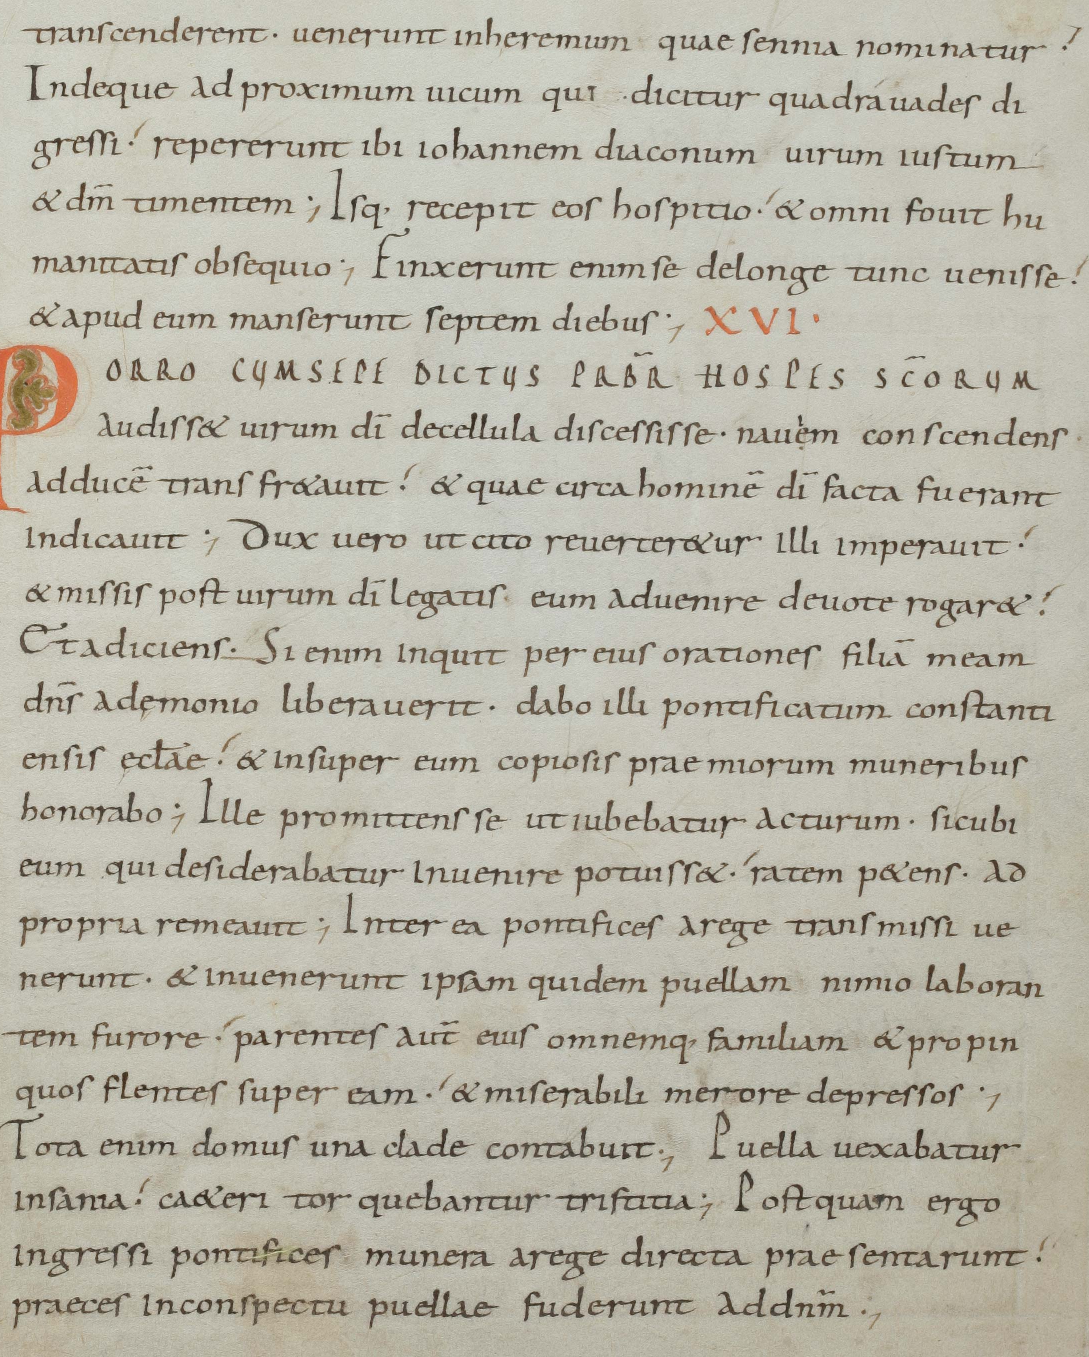 transcenderent. uenerunt inheremum quae sennia nominatur
Indeque ad proximum uicum qui dicitur quadrauades di
gressi. repererunt ibi iohannem diaconum uirum iustum
& dm̄ timentem; Isq, recepit eos hospitio. & omni fouit hu
manitatis obsequio; Finxerunt enim se delonge tunc uenisse.
& apud eum manserunt septem diebus; XVI.
PORRO CUM SEPE DICTUS PRB̄R HOSPES SC̄ORUM
Audiss& uirum dī decellula discessisse. nauem conscendens.
ad ducē trans fr&auit. & quae circa hominē dī facta fuerant
indicauit; Dux uero ut cito reuerter&ur illi imperauit.
& missis post uirum dī legatis. eum aduenire deuote rogar&.
Et adiciens. Si enim inquit per eius orationes filiā meam
dn̄s ademonio liberauerit. dabo illi pontificatum constanti
ensis ęcl̄ae. & insuper eum copiosis prae miorum muneribus
honorabo; Ille promittens se ut iubebatur acturum. sicubi
eum qui desiderabatur inuenire potuiss&. ratem p&ens. ad
propria remeauit; Inter ea pontifices arege transmissi ue
nerunt. & inuenerunt ipsam quidem puellam nimio laboran
tem furore. parentes aut̄ eius omnemq, familiam & propin
quos flentes super eam. & miserabili merore depressos;
Tota enim domus una clade contabuit; Puella uexabatur
insania. ca&eri tor quebantur tristitia; Postquam ergo
ingressi pontifices munera arege directa prae sentarunt.
praeces inconspectu puellae fuderunt ad dnm̄;